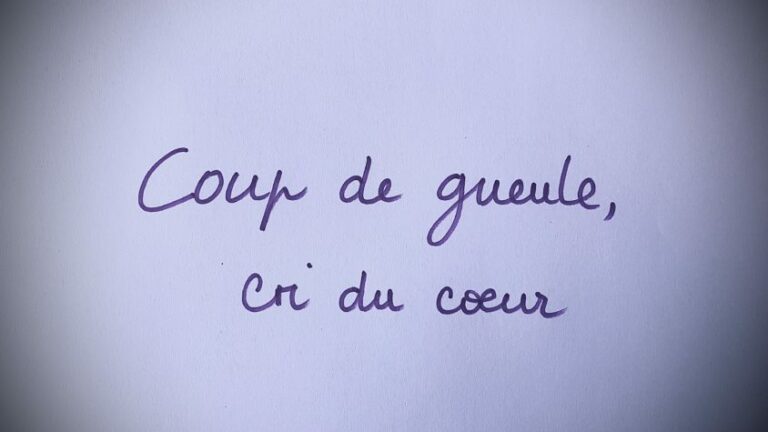 Coup de gueule,
cri du cœur